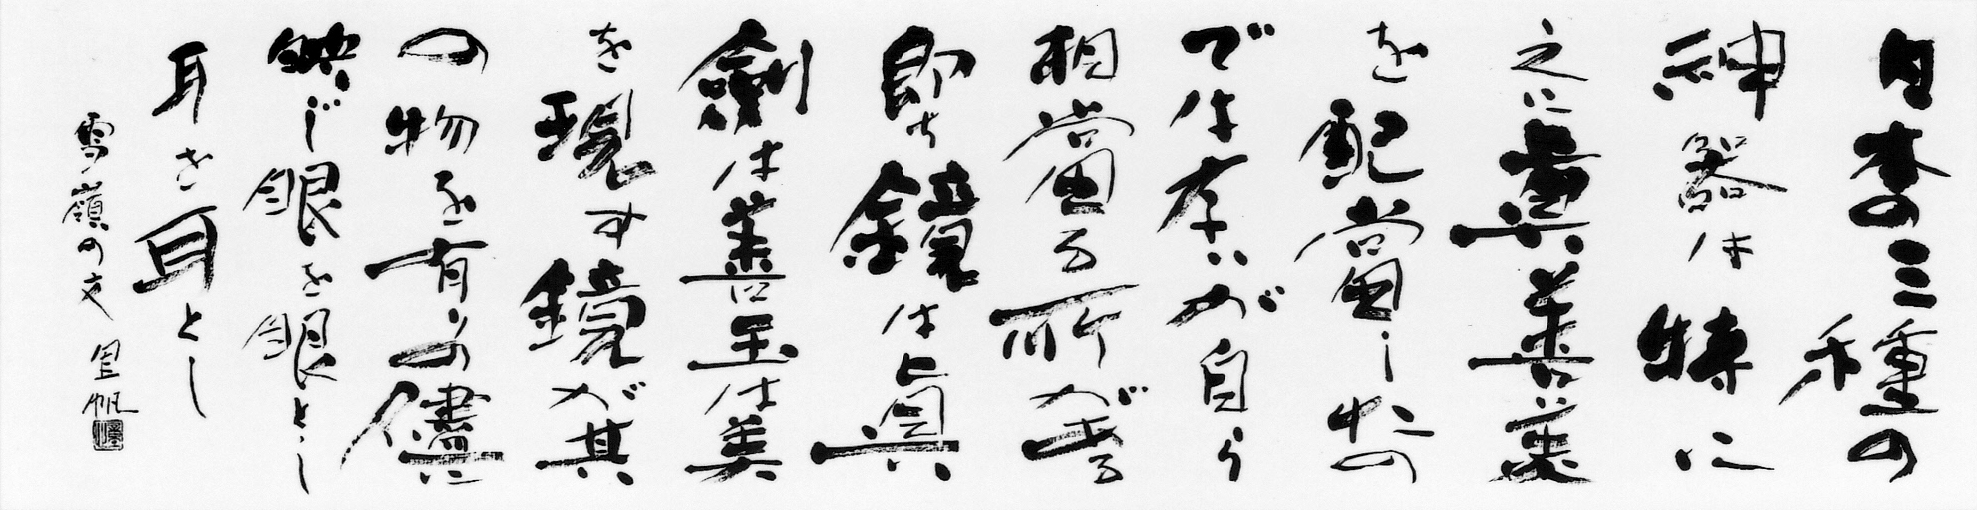 日本の三種の
神器は特に
之に眞善美
を配當した物
ではないが自ら
相當る所がある
即ち鏡は眞
劍は善玉は美
を現す鏡が其
の物を有りの儘に
映じ眼を眼とし
耳を耳とし
雪嶺の文